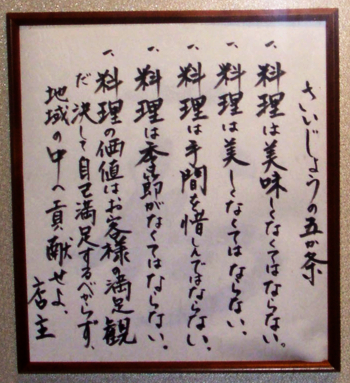 さいじょうの五か条
一、料理は美味しくなくてはならない。
一、料理は美しくなくてはならない、
一、料理は手間を惜しんではならない、
一、料理は季節がなくてはならない、
一、料理の価値はお客様の満足観
だ決して自己満足するべからず、
地域の中へ貢献せよ、
店主